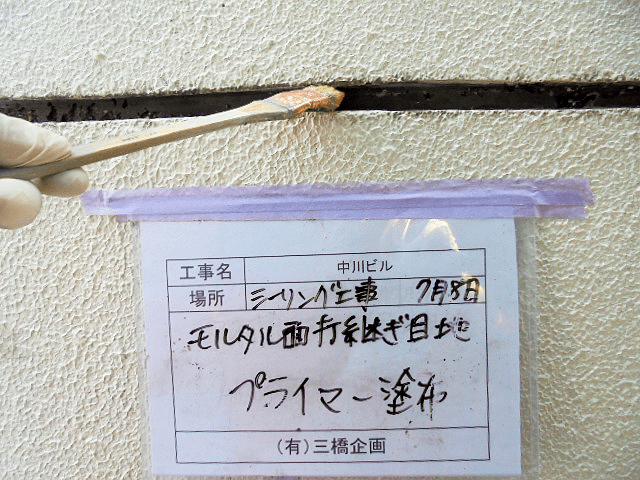 工事名 中川ビル
場所 シーリング工事 7月8日
モルタル面打継ぎ目地
プライマー塗布
(有)三橋企画